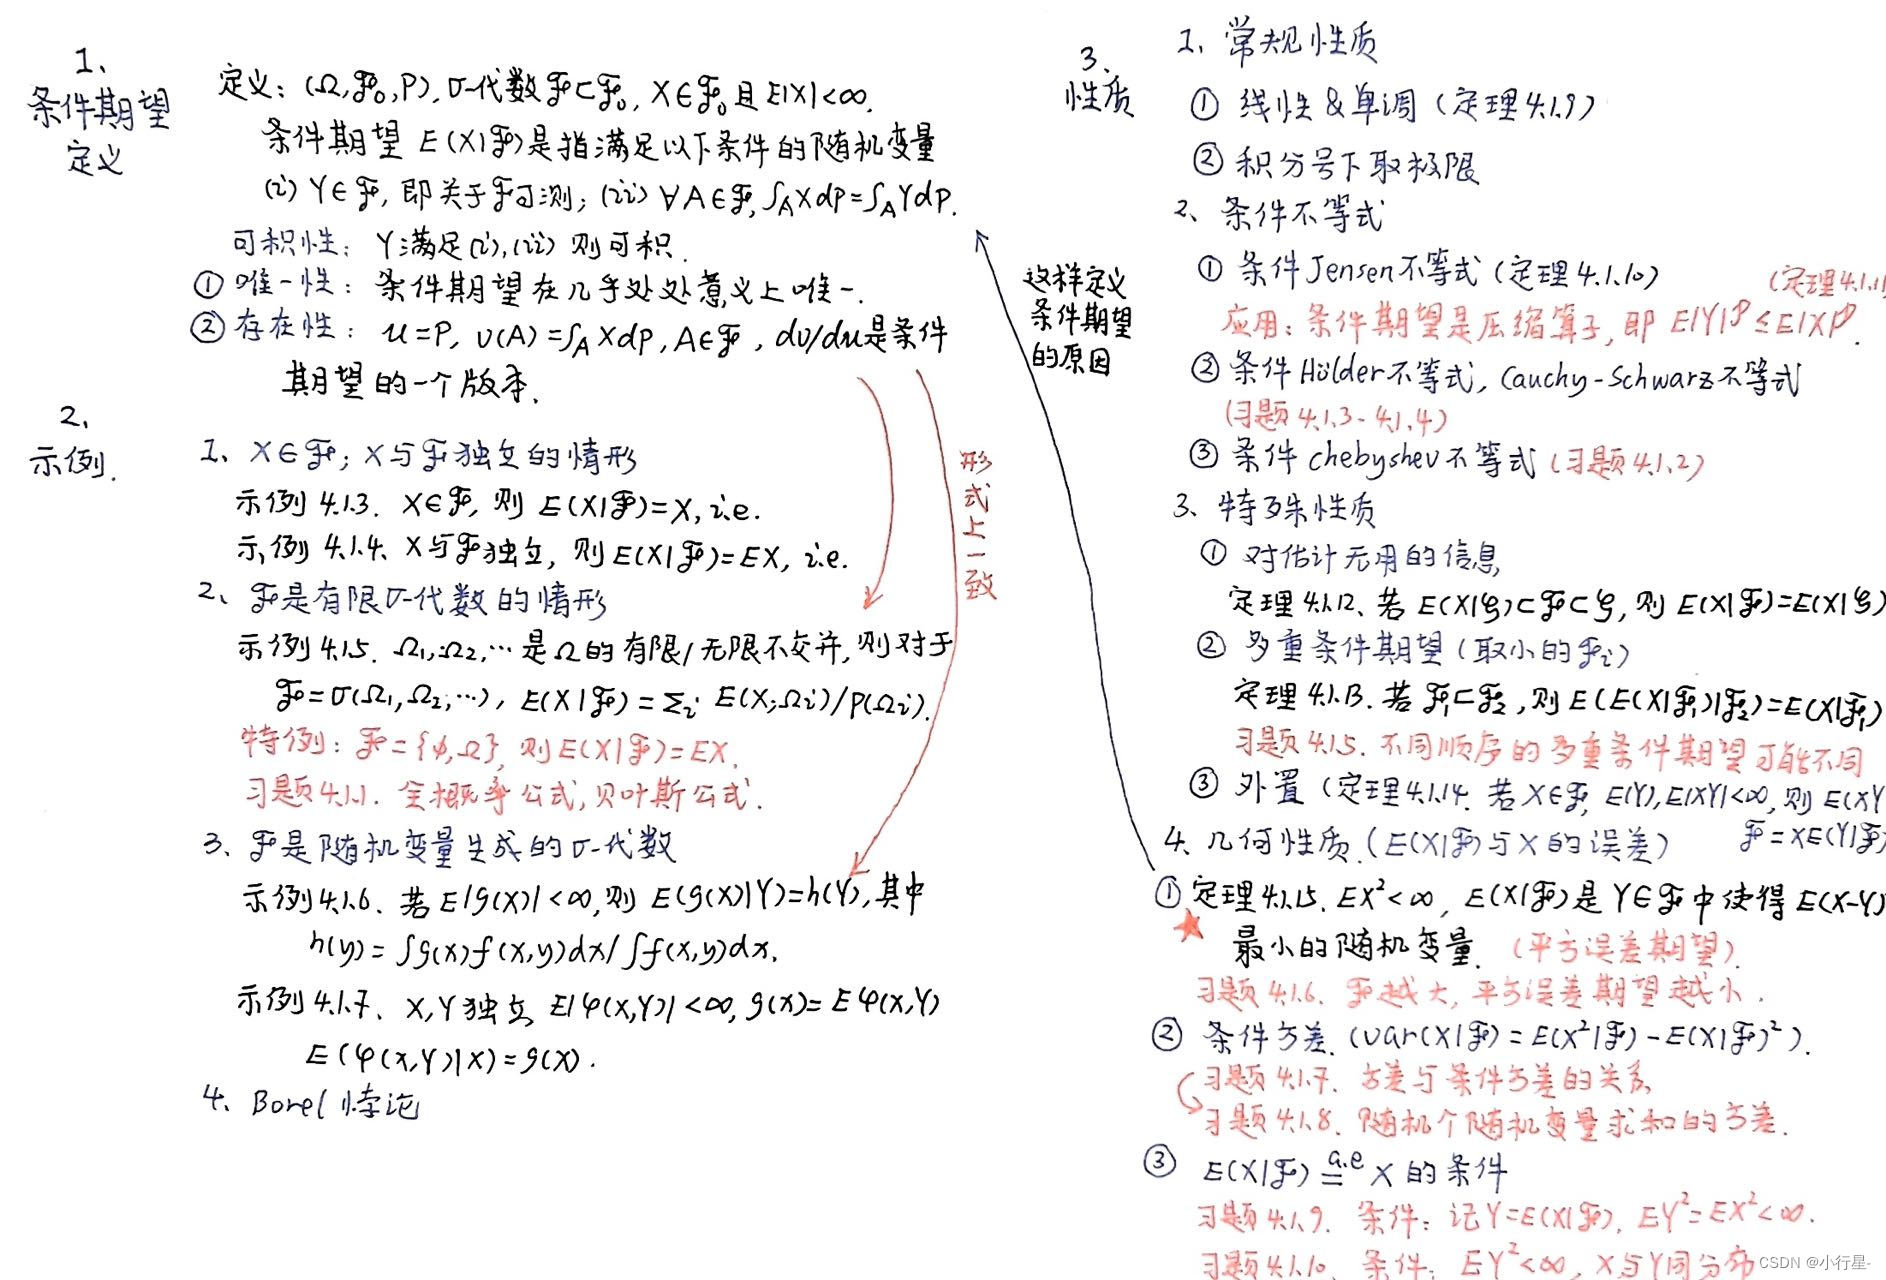 1、
条件期望
定义
定义：(Ω,ℱ₀,P),σ-代数ℱ⊂ℱ₀, X∈ℱ₀且E|X|<∞.
条件期望 E(X|ℱ)是指满足以下条件的随机变量
(i) Y∈ℱ, 即关于ℱ可测; (ii) ∀A∈ℱ, ∫_A Xdp=∫_A Ydp.
可积性： Y满足(i),(ii) 则可积.
① 唯一性： 条件期望在几乎处处意义上唯一.
② 存在性： u=P, υ(A)=∫_A Xdp, A∈ℱ, dυ/du是条件
期望的一个版本.
形式上一致
2、
示例.
1、X∈ℱ; X与ℱ独立的情形
示例 4.1.3. X∈ℱ, 则 E(X|ℱ)=X, i.e.
示例 4.1.4. X与ℱ独立, 则E(X|ℱ)=EX, i.e.
2、ℱ是有限σ-代数的情形
示例 4.1.5. Ω₁,Ω₂,… 是Ω的有限/无限不交并, 则对于
ℱ=σ(Ω₁,Ω₂,…), E(X|ℱ)=Σᵢ E(X;Ωᵢ)/P(Ωᵢ).
特例：ℱ={φ,Ω}, 则E(X|ℱ)=EX.
习题4.1.1. 全概率公式, 贝叶斯公式.
3、ℱ是随机变量生成的σ-代数
示例4.1.6. 若 E|g(X)|<∞, 则 E(g(X)|Y)=h(Y), 其中
h(y)=∫g(x)f(x,y)dx/∫f(x,y)dx.
示例 4.1.7. X,Y独立, E|φ(X,Y)|<∞, g(x)=Eφ(x,Y)
E(φ(X,Y)|X)=g(X).
4、Borel悖论
这样定义
条件期望
的原因
3、
性质
1、常规性质
① 线性&单调 (定理4.1.9)
② 积分号下取极限
2、条件不等式
① 条件Jensen不等式 (定理4.1.10)
(定理4.1.11
应用：条件期望是压缩算子, 即 E|Y|ᵖ≤E|X|ᵖ.
② 条件Hölder不等式, Cauchy-Schwarz不等式
(习题4.1.3-4.1.4)
③ 条件chebyshev不等式 (习题4.1.2)
3、特殊性质
① 对估计无用的信息
定理4.1.12、若 E(X|𝒢)⊂ℱ⊂𝒢, 则 E(X|ℱ)=E(X|𝒢)
② 多重条件期望 (取小的ℱᵢ)
定理4.1.13. 若ℱ₁⊂ℱ₂, 则E(E(X|ℱ₁)|ℱ₂)=E(X|ℱ₁)
习题4.1.5. 不同顺序的多重条件期望可能不同
③ 外置 (定理4.1.14. 若X∈ℱ, E|Y|,E|XY|<∞, 则 E(XY
ℱ=XE(Y|ℱ)
4、几何性质.(E(X|ℱ)与X的误差)
① 定理4.1.15. EX²<∞, E(X|ℱ)是Y∈ℱ中使得E(X-Y)
最小的随机变量. (平方误差期望).
习题4.1.6. ℱ越大, 平方误差期望越小.
② 条件方差.(var(X|ℱ)=E(X²|ℱ)-E(X|ℱ)²).
习题4.1.7. 方差与条件方差的关系
习题4.1.8. 随机个随机变量求和的方差.
③ E(X|ℱ) a.e = X 的条件
习题4.1.9. 条件：记Y=E(X|ℱ), EY²=EX²<∞.
习题4.1.10. 条件：EY²<∞, X与Y同分布
CSDN @小行星-